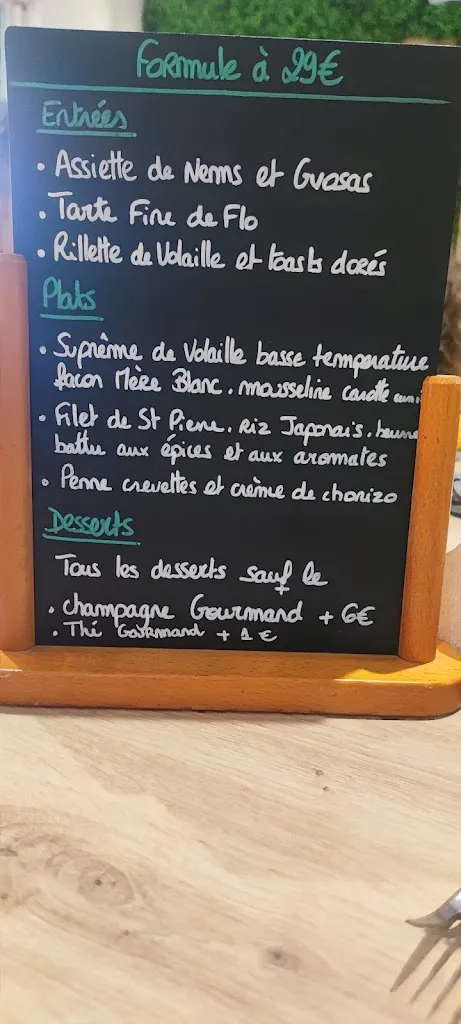 Formule à 29€
Entrées
• Assiette de Nems et Gyosas
• Tarte Fine de Flo
• Rillette de Volaille et toasts dorés
Plats
• Suprême de Volaille basse température
façon Mère Blanc. mousseline carotte
• Filet de St Pierre. Riz Japonais. beurre
battu aux épices et aux aromates
• Penne crevettes et crème de chorizo
Desserts
Tous les desserts sauf le
• champagne Gourmand + 6€
• Thé Gourmand + 1€